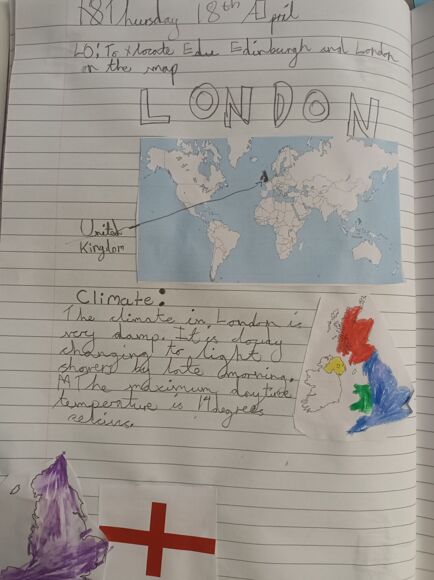 18 Thursday 18th April
LO: To locate Edu Edinburgh and London
on the map
LONDON
United
Kingdom
Climate:
The climate in London is
very damp. It is cloudy
changing to light
showers by late morning.
The maximum daytime
temperature is 14 degrees
celcius.